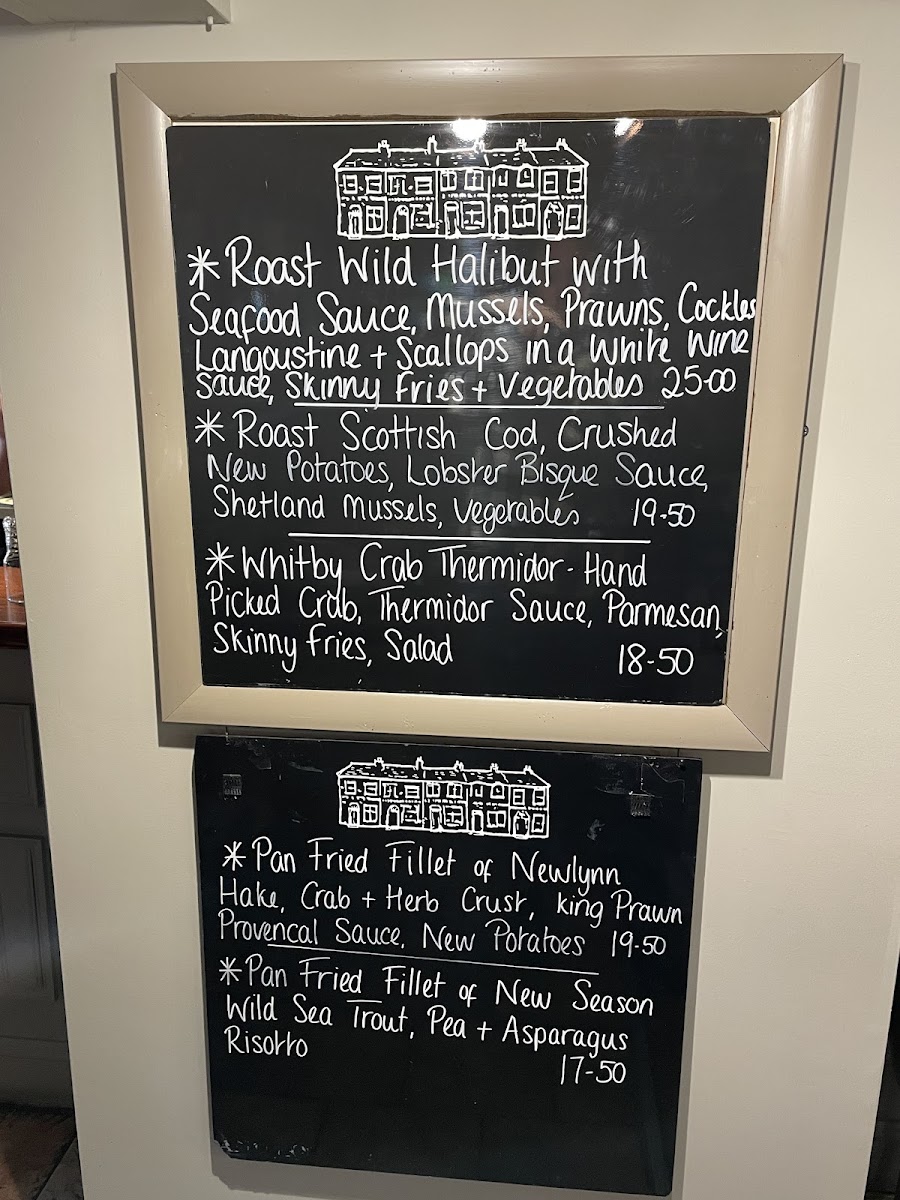 * Roast Wild Halibut with
Seafood Sauce, Mussels, Prawns, Cockles
Langoustine + Scallops in a White Wine
Sauce, Skinny Fries + Vegetables 25-00
* Roast Scottish Cod, Crushed
New Potatoes, Lobster Bisque Sauce,
Shetland Mussels, Vegetables 19-50
* Whitby Crab Thermidor - Hand
Picked Crab, Thermidor Sauce, Parmesan,
Skinny Fries, Salad 18-50
* Pan Fried Fillet of Newlynn
Hake, Crab + Herb Crust, King Prawn
Provencal Sauce, New Potatoes 19-50
* Pan Fried Fillet of New Season
Wild Sea Trout, Pea + Asparagus
Risotto 17-50